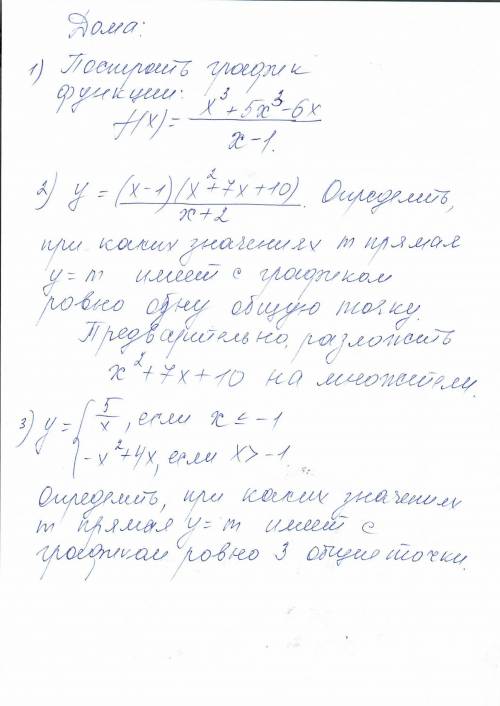 Дома:
1) Построить график
функции:
f(x) = (x³ + 5x³ - 6x) / (x - 1).
2) y = (x-1)(x²+7x+10) / (x+2). Определить,
при каких значениях m прямая
y = m имеет с графиком
ровно одну общую точку.
Предварительно разложить
x² + 7x + 10 на множители.
3) y = { 5/x, если x ≤ -1
-x²+4x, если x > -1.
Определить, при каких значениях
m прямая y = m имеет с
графиком ровно 3 общие точки.